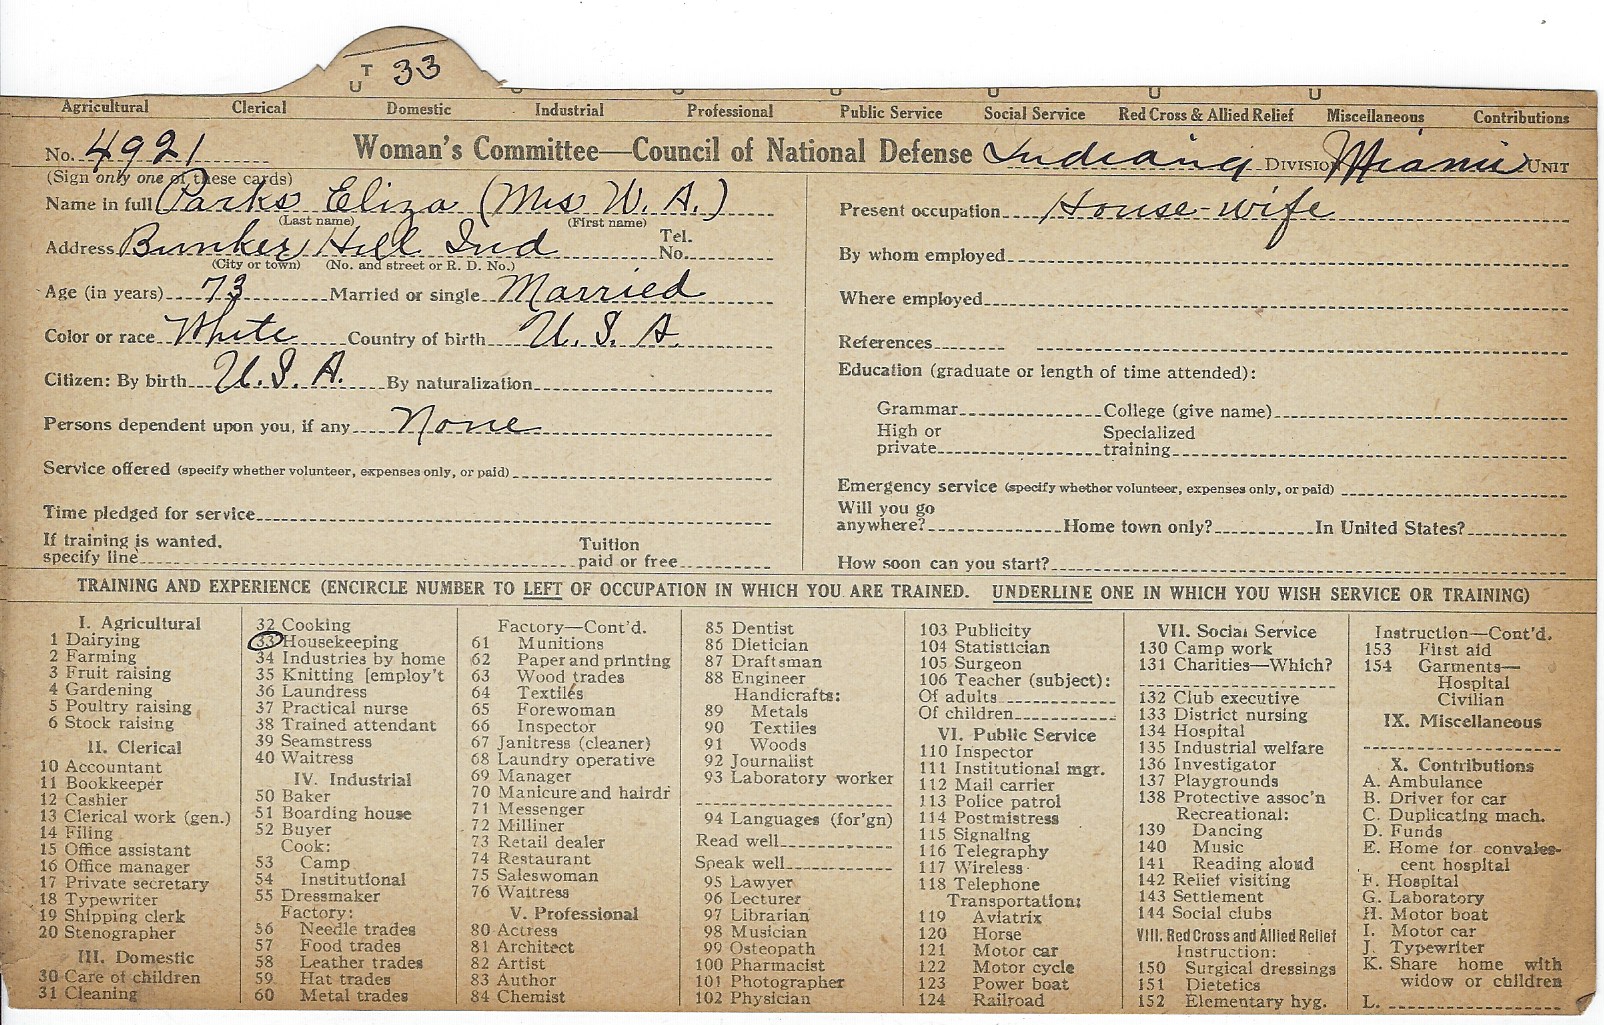 T
U 33
Agricultural Clerical Domestic Industrial Professional Public Service Social Service Red Cross & Allied Relief Miscellaneous Contributions
No. 4921 Woman's Committee—Council of National Defense Indiana DIVISION Miami UNIT
(Sign only one of these cards)
Name in full Parks Eliza (Mrs W. A.)
(Last name) (First name)
Address Bunker Hill Ind Tel. No.
(City or town) (No. and street or R. D. No.)
Age (in years) 73 Married or single Married
Color or race White Country of birth U. S. A.
Citizen: By birth U. S. A. By naturalization
Persons dependent upon you, if any None
Service offered (specify whether volunteer, expenses only, or paid)
Time pledged for service
If training is wanted, specify line Tuition paid or free
Present occupation House-wife
By whom employed
Where employed
References
Education (graduate or length of time attended):
Grammar College (give name)
High or private Specialized training
Emergency service (specify whether volunteer, expenses only, or paid)
Will you go anywhere? Home town only? In United States?
How soon can you start?
TRAINING AND EXPERIENCE (ENCIRCLE NUMBER TO LEFT OF OCCUPATION IN WHICH YOU ARE TRAINED. UNDERLINE ONE IN WHICH YOU WISH SERVICE OR TRAINING)
I. Agricultural
1 Dairying
2 Farming
3 Fruit raising
4 Gardening
5 Poultry raising
6 Stock raising
II. Clerical
10 Accountant
11 Bookkeeper
12 Cashier
13 Clerical work (gen.)
14 Filing
15 Office assistant
16 Office manager
17 Private secretary
18 Typewriter
19 Shipping clerk
20 Stenographer
III. Domestic
30 Care of children
31 Cleaning
32 Cooking
33 Housekeeping
34 Industries by home
35 Knitting [employ't
36 Laundress
37 Practical nurse
38 Trained attendant
39 Seamstress
40 Waitress
IV. Industrial
50 Baker
51 Boarding house
52 Buyer
Cook:
53 Camp
54 Institutional
55 Dressmaker
Factory:
56 Needle trades
57 Food trades
58 Leather trades
59 Hat trades
60 Metal trades
Factory—Cont'd.
61 Munitions
62 Paper and printing
63 Wood trades
64 Textiles
65 Forewoman
66 Inspector
67 Janitress (cleaner)
68 Laundry operative
69 Manager
70 Manicure and hairdr
71 Messenger
72 Milliner
73 Retail dealer
74 Restaurant
75 Saleswoman
76 Waitress
V. Professional
80 Actress
81 Architect
82 Artist
83 Author
84 Chemist
85 Dentist
86 Dietician
87 Draftsman
88 Engineer
Handicrafts:
89 Metals
90 Textiles
91 Woods
92 Journalist
93 Laboratory worker
94 Languages (for'gn)
Read well
Speak well
95 Lawyer
96 Lecturer
97 Librarian
98 Musician
99 Osteopath
100 Pharmacist
101 Photographer
102 Physician
103 Publicity
104 Statistician
105 Surgeon
106 Teacher (subject):
Of adults
Of children
VI. Public Service
110 Inspector
111 Institutional mgr.
112 Mail carrier
113 Police patrol
114 Postmistress
115 Signaling
116 Telegraphy
117 Wireless
118 Telephone
Transportation:
119 Aviatrix
120 Horse
121 Motor car
122 Motor cycle
123 Power boat
124 Railroad
VII. Social Service
130 Camp work
131 Charities—Which?
132 Club executive
133 District nursing
134 Hospital
135 Industrial welfare
136 Investigator
137 Playgrounds
138 Protective assoc'n
Recreational:
139 Dancing
140 Music
141 Reading aloud
142 Relief visiting
143 Settlement
144 Social clubs
VIII. Red Cross and Allied Relief
Instruction:
150 Surgical dressings
151 Dietetics
152 Elementary hyg.
Instruction—Cont'd.
153 First aid
154 Garments—
Hospital
Civilian
IX. Miscellaneous
X. Contributions
A. Ambulance
B. Driver for car
C. Duplicating mach.
D. Funds
E. Home for convales-
cent hospital
F. Hospital
G. Laboratory
H. Motor boat
I. Motor car
J. Typewriter
K. Share home with
widow or children
L.